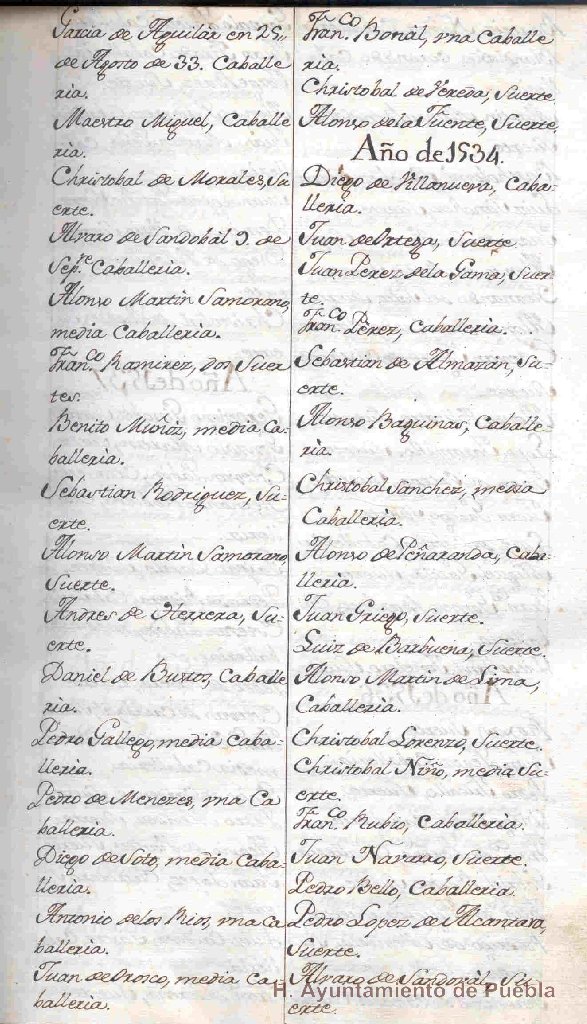 Garcia de Aguilar en 25,,
de Agosto de 33. Caballe
ria.
Maestro Miguel, Caballe
ria.
Christobal de Morales, Su
erte.
Alvaro de Sandobàl 9. de
Sepre Caballeria.
Alonso Martin Samorano,
media Caballeria.
Franco Ramirez, dos Suer
tes.
Benito Muñoz, media Ca-
balleria.
Sebastian Rodriguez, Su-
erte.
Alonso Martin Samorano,
Suerte.
Andres de Herrera, Su-
erte.
Daniel de Bustos, Caballe
ria.
Pedro Gallego, media Caba-
lleria.
Pedro de Meneses, rna Ca
balleria.
Diego de Soto, media Caba-
lleria.
Antonio delos Rios, rna Ca
balleria.
Juan de Orosco, media Ca-
balleria.
Franco Bonàl, rna Caballe
ria.
Christobal de Hereda, Suerte.
Alonso dela Fuente, Suerte.
Año de 1534.
Diego de Villanueva, Caba-
lleria.
Juan de Ortega, Suerte
Juan Perez dela Gama, Suer-
te.
Franco Pèrez, Caballeria.
Sebastian de Almazan, Su-
erte.
Alonso Baquinas, Caballe
ria.
Christobal Sanchez, media
Caballeria.
Alonso de Peñaranda, Caba-
lleria.
Juan Griego, Suerte.
Luiz de Barbuena, Suerte.
Alonso Martin de Lima,
Caballeria.
Christobal Lorenzo, Suerte.
Christobal Niño, media Su-
erte.
Franco Rubio, Caballeria.
Juan Navarro, Suerte.
Pedro Bello, Caballeria.
Pedro Lopez de Alcantara,
Suerte.
Alvaro de Sandovàl, Su-
erte.
H. Ayuntamiento de Puebla